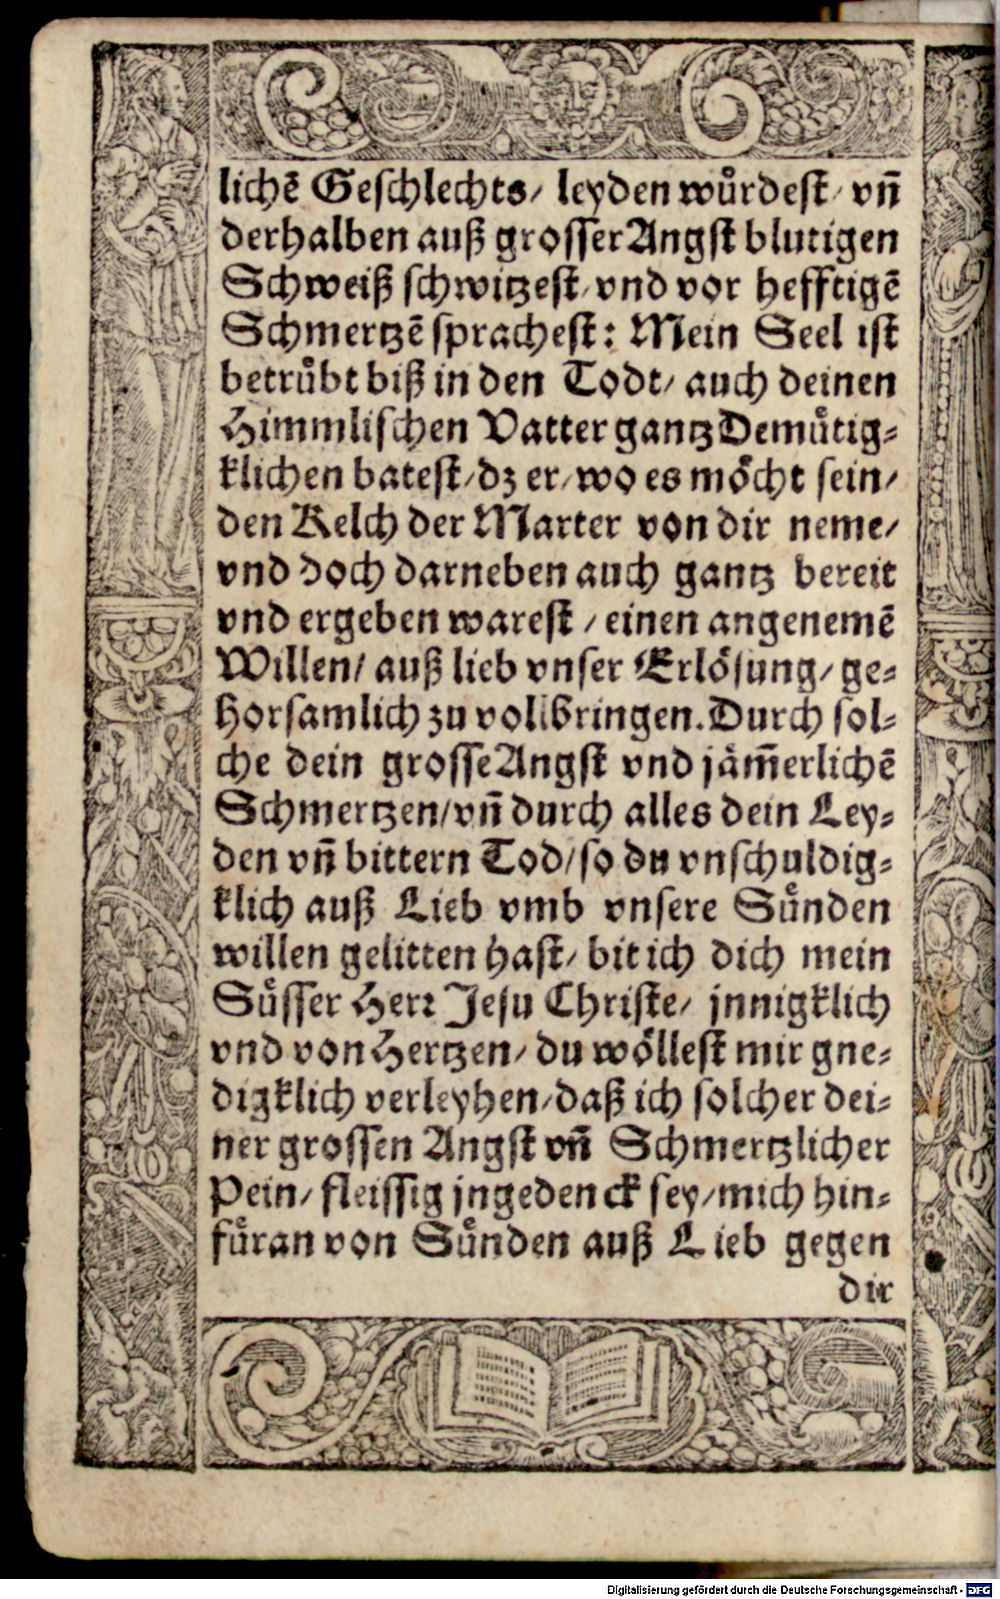 lichẽ Geschlechts/ leyden wuͤrdest/ vñ
derhalben auß grosser Angst blutigen
Schweiß schwitzest/ vnd vor hefftigẽ
Schmertzẽ sprachest: Mein Seel ist
betruͤbt biß in den Todt/ auch deinen
Himmlischen Vatter gantz Demuͤtig⸗
klichen batest/ dz er/ wo es moͤcht sein/
den Kelch der Marter von dir neme/
vnd doch darneben auch gantz bereit
vnd ergeben warest / einen angenemẽ
Willen/ auß lieb vnser Erloͤsung/ ge⸗
horsamlich zu vollbringen. Durch sol⸗
che dein grosse Angst vnd jaͤm̃erlichẽ
Schmertzen/ vñ durch alles dein Ley⸗
den vñ bittern Tod/ so du vnschuldig⸗
klich auß Lieb vmb vnsere Suͤnden
willen gelitten hast/ bit ich dich mein
Suͤsser Herr Jesu Christe/ jnnigklich
vnd von Hertzen/ du woͤllest mir gne⸗
digklich verleyhen/ daß ich solcher dei⸗
ner grossen Angst vñ Schmertzlicher
Pein/ fleissig jngedenck sey/ mich hin⸗
fuͤran von Suͤnden auß Lieb gegen
dir
Digitalisierung gefördert durch die Deutsche Forschungsgemeinschaft - DFG